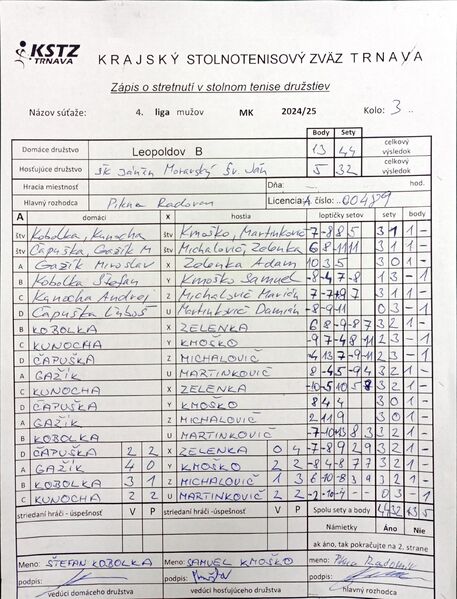 KSTZ
TRNAVA
KRAJSKÝ STOLNOTENISOVÝ ZVÄZ TRNAVA
Zápis o stretnutí v stolnom tenise družstiev
Názov súťaže: 4. liga mužov MK 2024/25 Kolo: 3
Body Sety
Domáce družstvo Leopoldov B 13 44 celkový výsledok
Hosťujúce družstvo ŠK Jánža Moravský Sv. Ján 5 32 celkový výsledok
Hracia miestnosť Dňa: hod.
Hlavný rozhodca Pikna Radovan Licencia A číslo: 00489
A domáci X hostia loptičky setov sety body
štv Kobolka, Kunocha štv Kmoško, Martinkovič 7 -8 8 5 3 1 1 -
štv Čapuška, Gažík M štv Michalovič, Zelenka 6 8 -11 11 3 1 1 -
A Gažík Miroslav X Zelenka Adam 10 3 5 3 0 1 -
B Kobolka Štefan Y Kmoško Samuel -8 -4 7 -8 1 3 - 1
C Kunocha Andrej Z Michalovič Marián 7 -7 7 3 1 1 -
D Čapuška Ľuboš U Martinkovič Damián -8 -9 -11 0 3 - 1
B KOBOLKA X ZELENKA 6 8 -9 -8 7 3 2 1 -
C KUNOCHA Y KMOŠKO -9 7 -4 8 11 2 3 - 1
D ČAPUŠKA Z MICHALOVIČ -4 13 7 -9 -11 2 3 - 1
A GAŽÍK U MARTINKOVIČ 8 -4 5 -9 4 3 2 1 -
C KUNOCHA X ZELENKA -10 -5 10 5 8 3 2 1 -
D ČAPUŠKA Y KMOŠKO 8 4 4 3 0 1 -
A GAŽÍK Z MICHALOVIČ 2 11 9 3 0 1 -
B KOBOLKA U MARTINKOVIČ -7 -10 13 8 3 3 2 1 -
D ČAPUŠKA 2 2 X ZELENKA 0 4 -7 -8 9 2 9 3 2 1 -
A GAŽÍK 4 0 Y KMOŠKO 2 2 -8 4 -8 7 7 3 2 1 -
B KOBOLKA 3 1 Z MICHALOVIČ 1 3 6 -10 -8 3 9 3 2 1 -
C KUNOCHA 2 2 U MARTINKOVIČ 2 2 -2 -10 -4 0 3 - 1
striedaní hráči - úspešnosť V P striedaní hráči - úspešnosť V P Spolu sety a body 44 32 13 5
Námietky Áno Nie
ak áno, tak pokračujte na 2. strane
Meno: ŠTEFAN KOBOLKA Meno: SAMUEL KMOŠKO Meno: Pikna Radovan
podpis: podpis: podpis:
vedúci domáceho družstva vedúci hosťujúceho družstva hlavný rozhodca